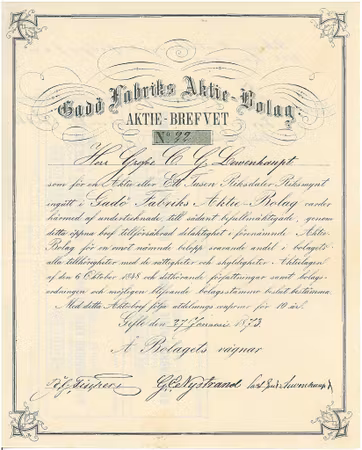 Gadö Fabriks Aktie-Bolag
AKTIE-BREFVET
No 92
Herr Grefve C. G. Lewenhaupt
som för en Aktie eller Ett Tusen Riksdaler Riksmynt
ingått i Gadö Fabriks Aktie-Bolag varder
härmed af undertecknade, till sådant befullmäktigade, genom
detta öppna bref tillförsäkrad delaktighet i förenämnde Aktie-
Bolag för en emot nämnde belopp svarande andel i bolagets
alla tillhörigheter med de rättigheter och skyldigheter i Aktielagen
af den 6 Oktober 1848 och dithörande författningar samt bolags-
ordningen och möjligen följande bolagsstämmor beslut bestämma.
Med detta Aktiebref följa utdelnings-couponer för 10 år.
Gefle den 27 Januari 1873.
Å Bolagets vägnar
G. E. Nystrand